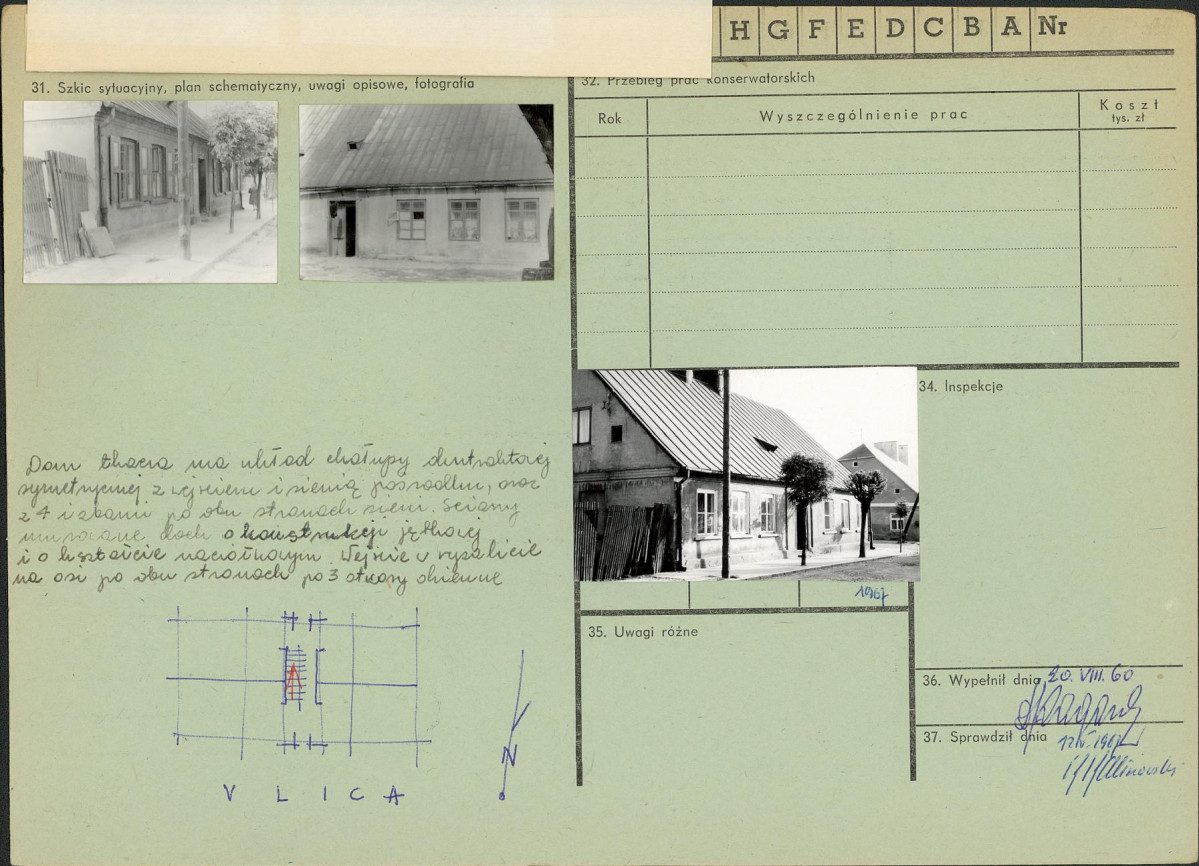 H G F E D C B A Nr
31. Szkic sytuacyjny, plan schematyczny, uwagi opisowe, fotografia
32. Przebieg prac konserwatorskich
Rok
Wyszczególnienie prac
Koszt
tys. zł
Dom tkacza ma układ chałupy dwutraktowej
symetrycznej z wejściem i sienią pośrodku, oraz
z 4 izbami po obu stronach sieni. Ściany
murowane dach o konstrukcji jętkowej
i o kształcie naczółkowym. Wejście w ryzalicie
na osi po obu stronach po 3 otwory okienne
V L I C A
N
34. Inspekcje
1967
35. Uwagi różne
36. Wypełnił dnia 20. VIII. 60
37. Sprawdził dnia